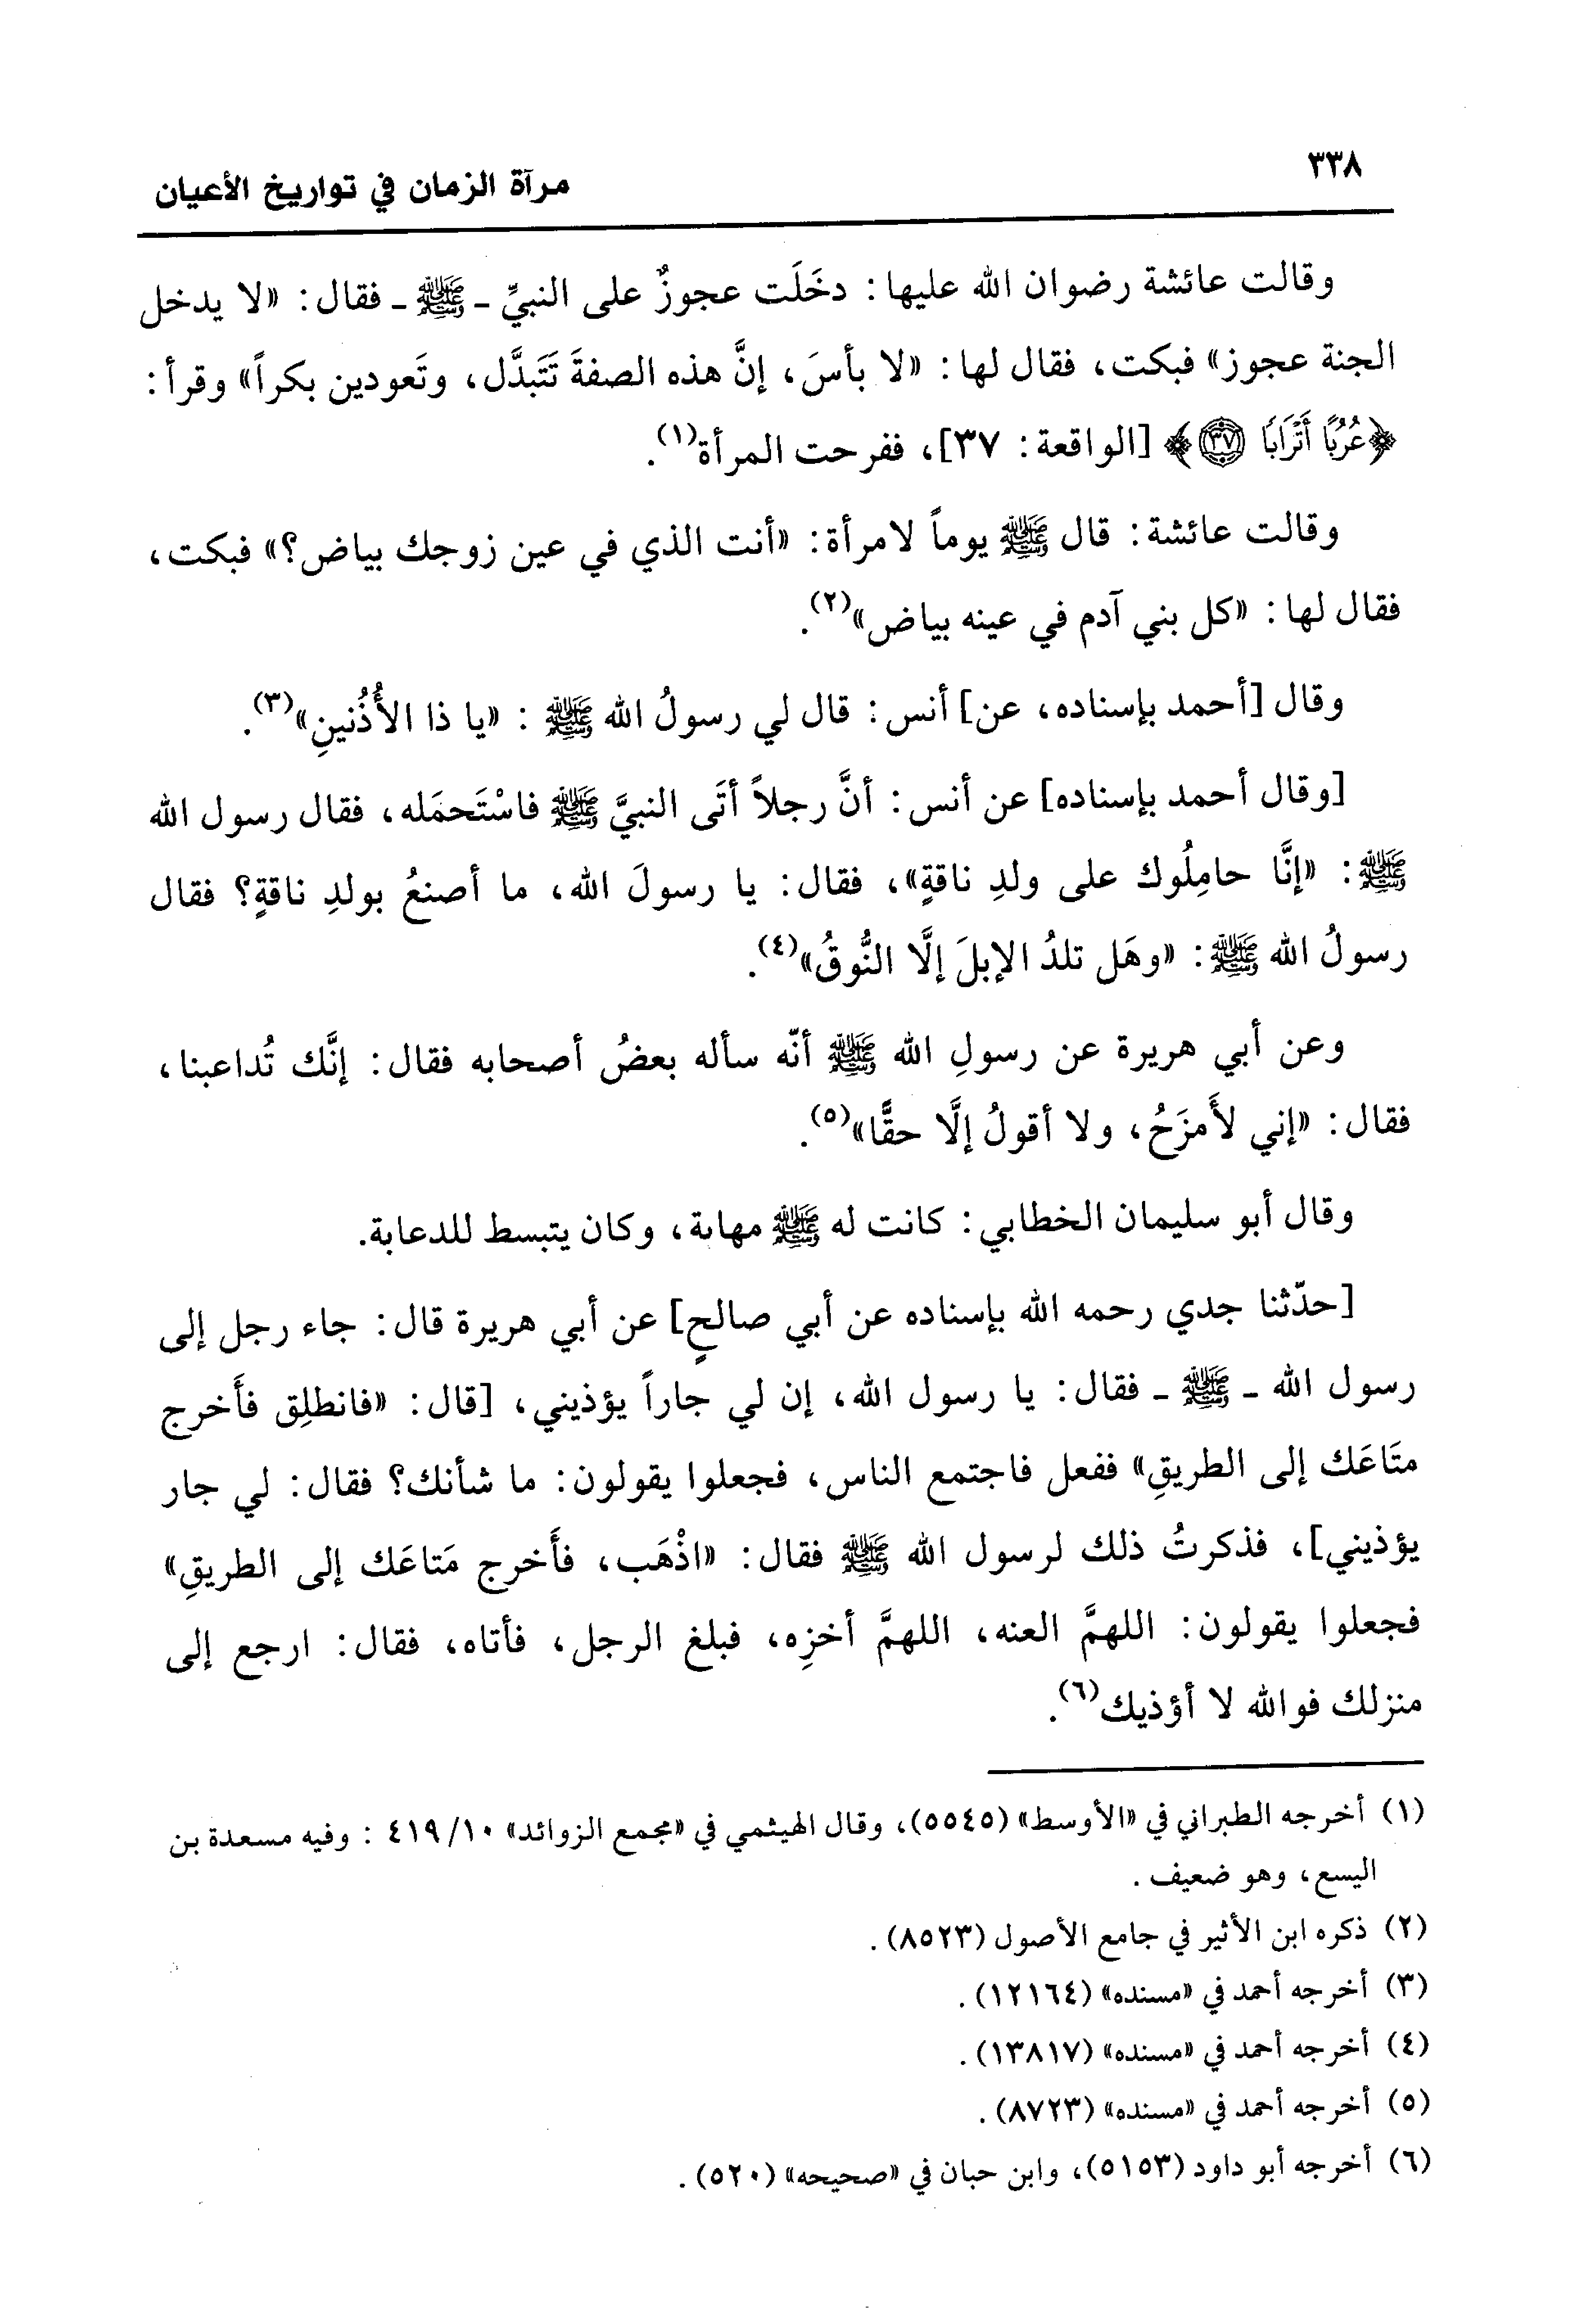 ٣٣٨
مرآة الزمان في تواريخ الأعيان
وقالت عائشة رضوان الله عليها: دخَلَت عجوزٌ على النبيِّ ـ ﷺ ـ فقال: «لا يدخل
الجنة عجوز» فبكت، فقال لها: «لا بأسَ، إنَّ هذه الصفةَ تَتَبدَّل، وتَعودين بكراً» وقرأ:
﴿عُرُبًا أَتْرَابًا ٣٧﴾ [الواقعة: ٣٧]، ففرحت المرأة(١).
وقالت عائشة: قال ﷺ يوماً لامرأة: «أنت الذي في عين زوجك بياض؟» فبكت،
فقال لها: «كل بني آدم في عينه بياض»(٢).
وقال [أحمد بإسناده، عن] أنس: قال لي رسولُ الله ﷺ: «يا ذا الأُذُنينِ»(٣).
[وقال أحمد بإسناده] عن أنس: أنَّ رجلاً أتَى النبيَّ ﷺ فاسْتَحمَله، فقال رسول الله
ﷺ: «إنَّا حامِلُوك على ولدِ ناقةٍ»، فقال: يا رسولَ الله، ما أصنعُ بولدِ ناقةٍ؟ فقال
رسولُ الله ﷺ: «وهَل تلدُ الإبلَ إلَّا النُّوقُ»(٤).
وعن أبي هريرة عن رسولِ الله ﷺ أنّه سأله بعضُ أصحابه فقال: إنَّك تُداعبنا،
فقال: «إني لأَمزَحُ، ولا أقولُ إلَّا حقًّا»(٥).
وقال أبو سليمان الخطابي: كانت له ﷺ مهابة، وكان يتبسط للدعابة.
[حدّثنا جدي رحمه الله بإسناده عن أبي صالحٍ] عن أبي هريرة قال: جاء رجل إلى
رسول الله ـ ﷺ ـ فقال: يا رسول الله، إن لي جاراً يؤذيني، [قال: «فانطلِق فأَخرج
متَاعَك إلى الطريقِ» ففعل فاجتمع الناس، فجعلوا يقولون: ما شأنك؟ فقال: لي جار
يؤذيني]، فذكرتُ ذلك لرسول الله ﷺ فقال: «اذْهَب، فأَخرج مَتاعَك إلى الطريقِ»
فجعلوا يقولون: اللهمَّ العنه، اللهمَّ أخزِه، فبلغ الرجل، فأتاه، فقال: ارجع إلى
منزلك فوالله لا أؤذيك(٦).
(١) أخرجه الطبراني في «الأوسط» (٥٥٤٥)، وقال الهيثمي في «مجمع الزوائد» ٤١٩/١٠: وفيه مسعدة بن
اليسع، وهو ضعيف.
(٢) ذكره ابن الأثير في جامع الأصول (٨٥٢٣).
(٣) أخرجه أحمد في «مسنده» (١٢١٦٤).
(٤) أخرجه أحمد في «مسنده» (١٣٨١٧).
(٥) أخرجه أحمد في «مسنده» (٨٧٢٣).
(٦) أخرجه أبو داود (٥١٥٣)، وابن حبان في «صحيحه» (٥٢٠).